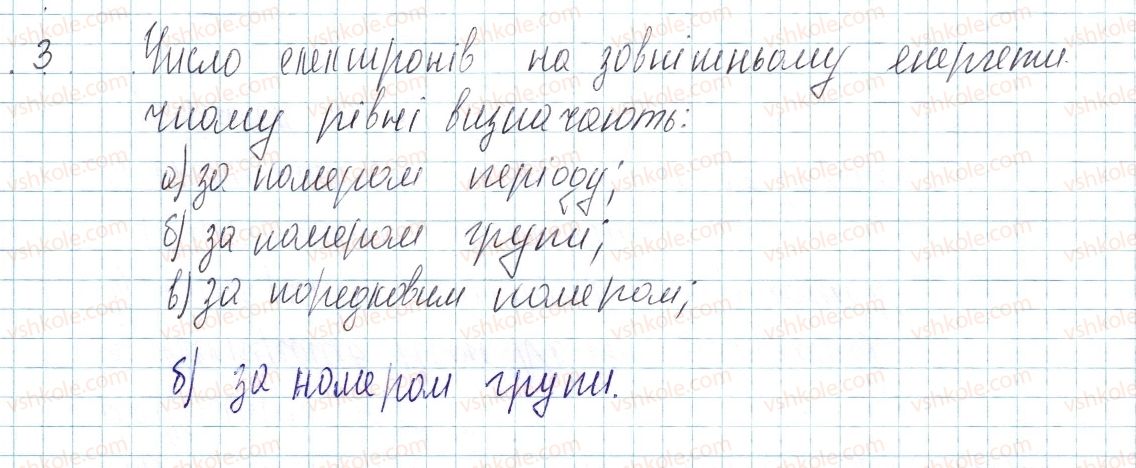 3. Число електронів на зовнішньому енергети-
чному рівні визначають:
а) за номером періоду;
б) за номером групи;
в) за порядковим номером;
б) за номером групи.